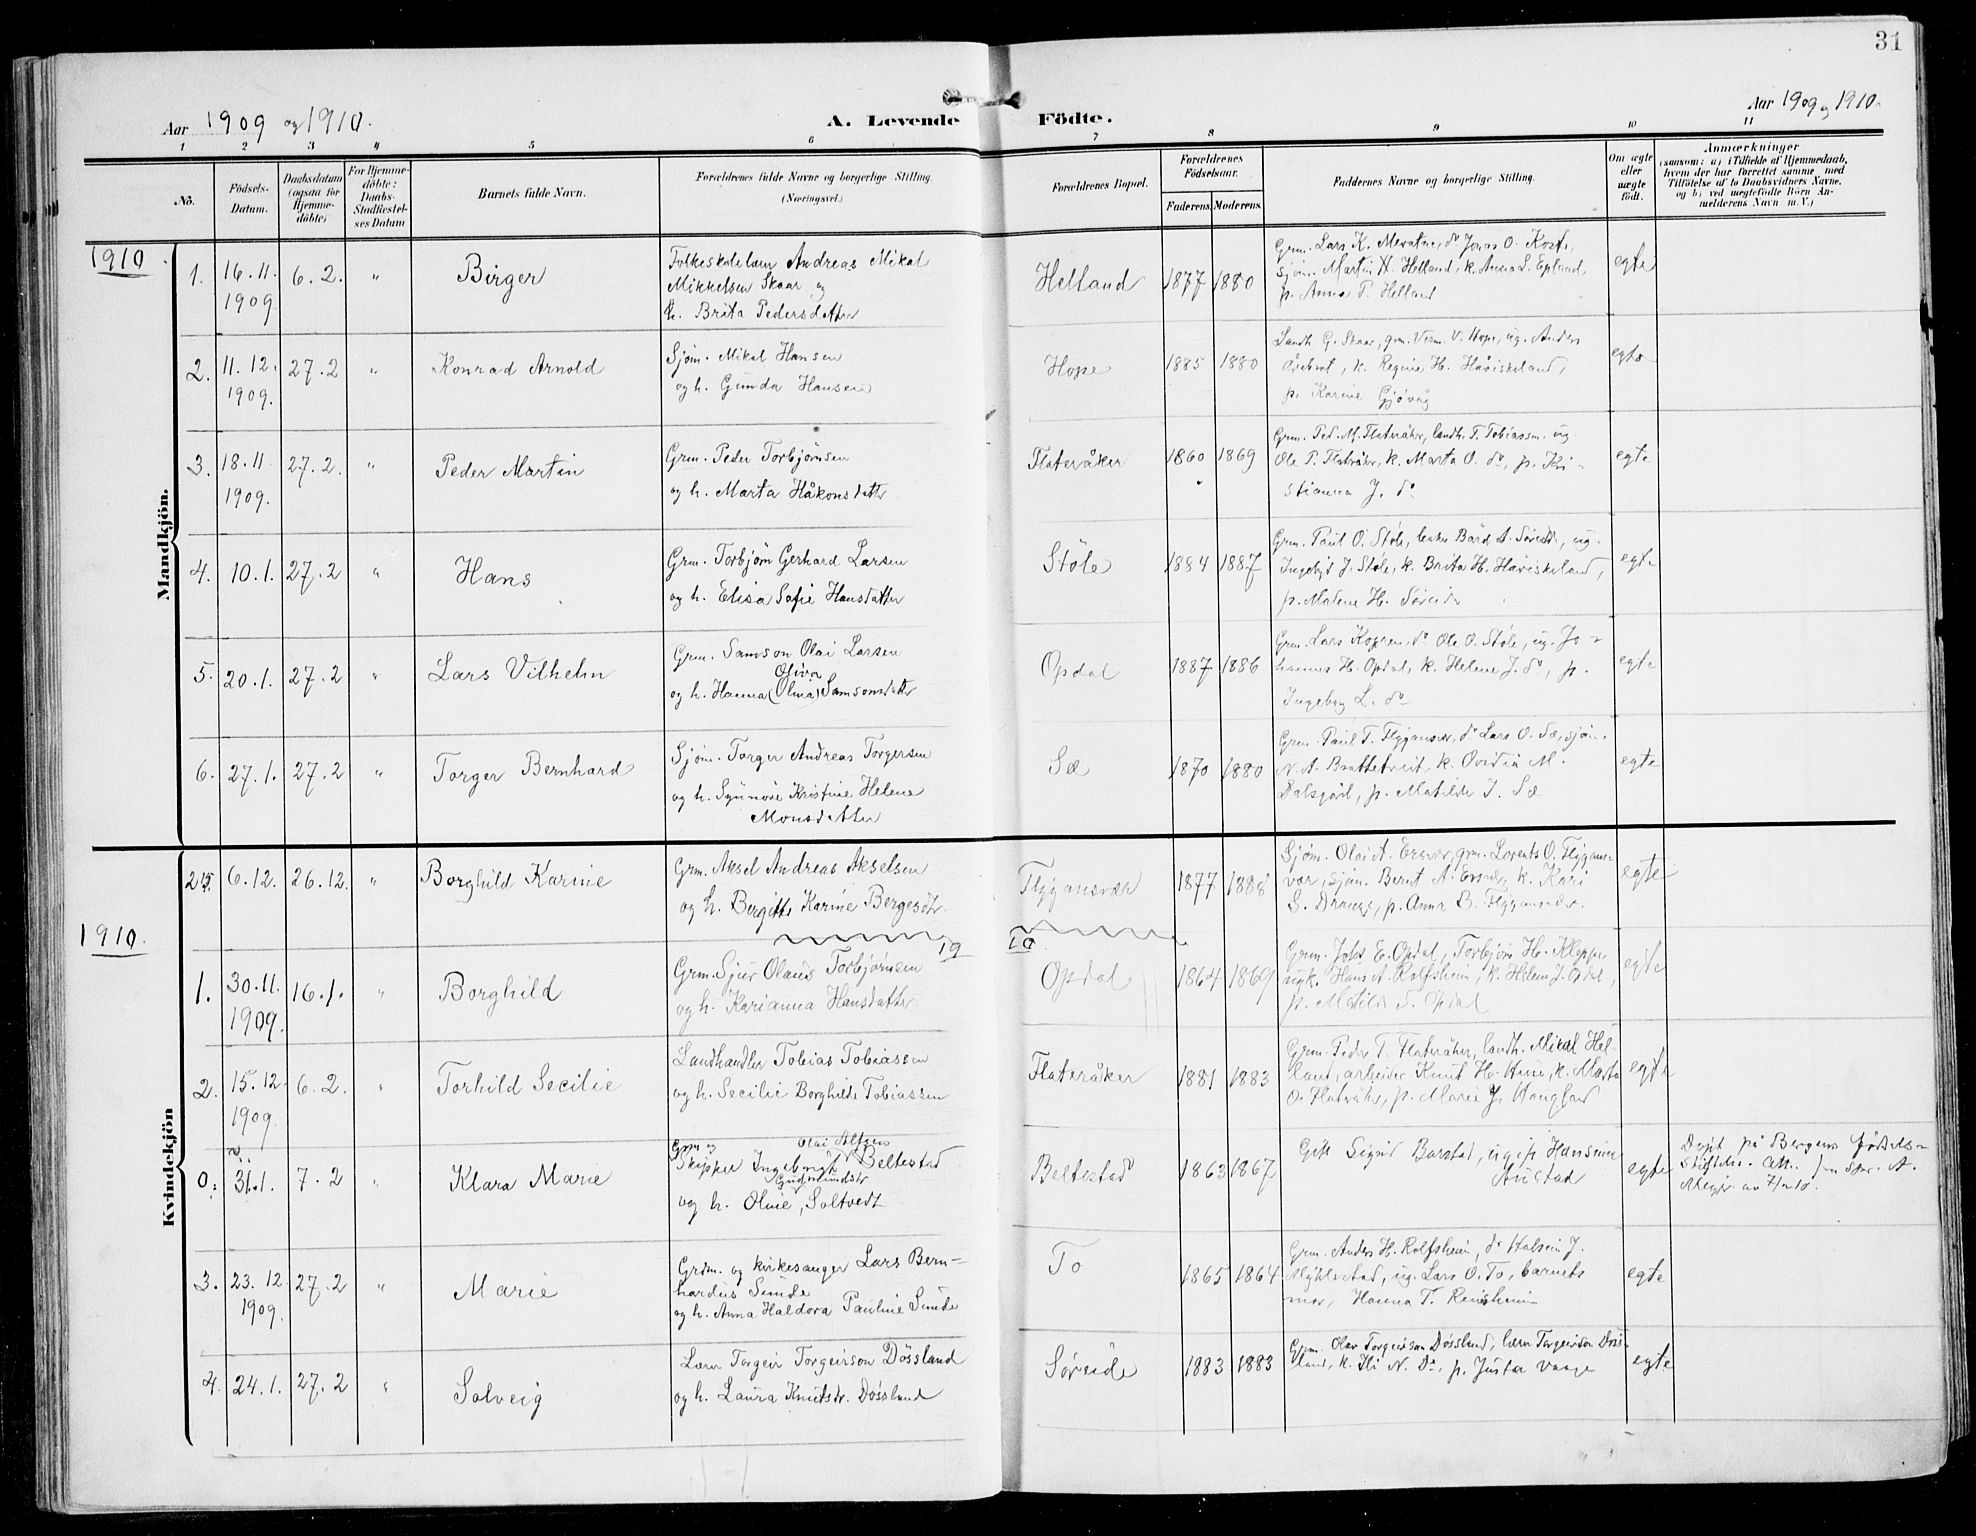 31
Aar 1909 og 1910.
A. Levende Födte.
Aar 1909 og 1910.
1 2 3 4 5 6 7 8 9 10 11
No.
Födsels-
Datum.
Daabsdatum
(ogsaa for
Hjemme-
döbte)
For Hjemme-
döbte:
Daabs-
Stadfæstel-
ses Datum
Barnets fulde Navn.
Forældrenes fulde Navne og borgerlige Stilling.
(Næringsvei.)
Forældrenes Bopæl.
Forældrenes
Födselsaar.
Faderens. Moderens.
Faddernes Navne og borgerlige Stilling.
Om ægte
eller
uægte
födt.
Anmærkninger
(saasom: a) i Tilfælde af Hjemmedaab,
hvem der har forrettet samme, med
Tilföielse af to Daabsvidners Navne,
og b) ved uegtefödte Börn An-
melderens Navn m. V.)
Mandkjön.
1910.
1. 16.11. 1909 6.2. " Birger
Folkeskolelærer Andreas Mikal
Mikkelsen Skaar og
h. Brita Pedersdatter
Helland 1877 1880
Grm. Lars K. Mevatne, do Jonas O.
sjöm. Martin H. Helland, k. Anna L.
p. Anna P. Helland
egte
2. 11.12. 1909. 27.2 " Konrad Arnold
Sjöm. Mikal Hansen
og h. Gunda Hansen
Hope 1885 1880
Landh. G. Skaar, grm. V. Hope, ug. Anders
k. Regine H. Håviskeland,
p. Karine Gjövåg
egte
3. 18.11 1909. 27.2. " Peder Martin
Grm. Peder Torbjörnsen
og h. Marta Håkonsdatter
Flateråker 1860 1869
Grm. Ped. M. Flateråker, landh. T. Tobiassen, ug.
Ole P. Flateråker, k. Marta O. do, p. Kri-
stianna J. do
egte
4. 10.1. 27.2 " Hans
Grm. Torbjörn Gerhard Larsen
og h. Elisa Sofie Hansdatter
Stöle 1884 1887
Grm. Paul O. Stöle, Bård A. Söreide, ug.
Ingebjt J. Stöle, k. Brita H. Håviskeland,
p. Malene H. Söreide
egte
5. 20.1. 27.2 " Lars Vilhelm
Grm. Samson Olai Larsen
Oliva
og h. Hanna (Olina) Samsonsdatter
Opdal 1887 1886
Grm. Lars Koppen, do Ole O. Stöle, ug. Jo-
hannes H. Opdal, k. Helene J. do, p.
Ingeborg L. do
egte
6. 27.1. 27.2 " Torger Bernhard
Sjöm. Torger Andreas Torgersen
og h. Synnöve Kristine Helene
Monsdatter
Sæ 1870 1880
Grm. Paul T. Flygansvær, do Lars O. Sæ, sjöm.
N. A. Brattetveit, k. Ovidia M.
Dalsgård, p. Matilde J. Sæ
egte
Kvindekjön
25. 6.12. 26.12. " Borghild Karine
Grm. Aksel Andreas Akselsen
og h. Bergitte Karine Bergesdtr.
Flygansvær 1877 1888
Sjöm. Olai A. Ersvær, grm. Lorents O. Flygans-
vær, sjöm. Bernt A. Ersvær, k. Kari
S. p. Anna B. Flygansvær.
egte
19 10
1910.
1. 30.11. 1909. 16.1. " Borghild
Grm. Sjur Olaus Torbjörnsen
og h. Karianna Hansdatter.
Opdal 1864 1869
Grm. E. Opdal, Torbjörn H. Kleppe,
ugk. Hans A. Rolfsheim, k. Helene J. Opdal,
p. Matilde S. Opdal
egte
2. 15.12. 1909. 6.2. " Torhild Secilie
Landhandler Tobias Tobiassen
og h. Secilie Borghilde Tobiassen
Flateråker 1881 1883
Grm. Peder T. Flateråker, landh. Mikal Hel-
land, arbeider Knut H. k. Marta
O. Flateråker, p. Marie J. Haugland
egte
0. 31.1. 7.2 " Klara Marie
Grm og Olai Alfsen
Skipper Ingebrigt Beltestad
Gudmundsdtr
og h. Oline, Soltvedt
Beltestad 1863 1867
Gift Sigrid Barstad, ugep Hansine
Austad
egte
Døpt på Bergens fødsels-
stiftelse. Att. fra A.
av 7/2 10.
3. 23.12. 1909. 27.2 " Marie
Grdm. og kirkesanger Lars Bern-
hardus Sunde
og h. Anna Haldora Pauline Sunde
To 1865 1864
Grm. Anders H. Rolfsheim, do Halsein J.
Myklestad, ug. Lars O. To, barnets
mor, Hanna T. Rensheim
egte
4. 24.1. 27.2 " Solveig
Lærer Torgeir Torgeirson Dössland
og h. Laura Knutsdr. Dössland
Söreide 1883 1883
Grm. Olav Torgeirson Dössland, lærer Torgeirson Döss-
land, k. N. Do, p. Justa Vaage
egte